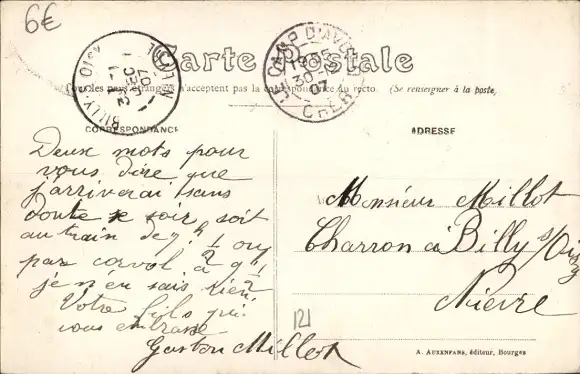 6€
Carte Postale
Tous les pays étrangers n'acceptent pas la correspondance au recto. (Se renseigner à la poste)
CAMP D'AVORD
19 35
30-12
07
CHER
BILLY-S-OISY
NIEVRE
07
CORRESPONDANCE
ADRESSE
Deux mots pour
vous dire que
j'arriverai sans
doute ce soir soit
au train de 7h ½ ou
par corvol à 9h ½
je n'en sais rien
Votre fils qui
vous embrasse
Gaston Millot
Monsieur Millot
Charron à Billy s/Oisy
Nièvre
121
A. AUXENFANS, éditeur, Bourges